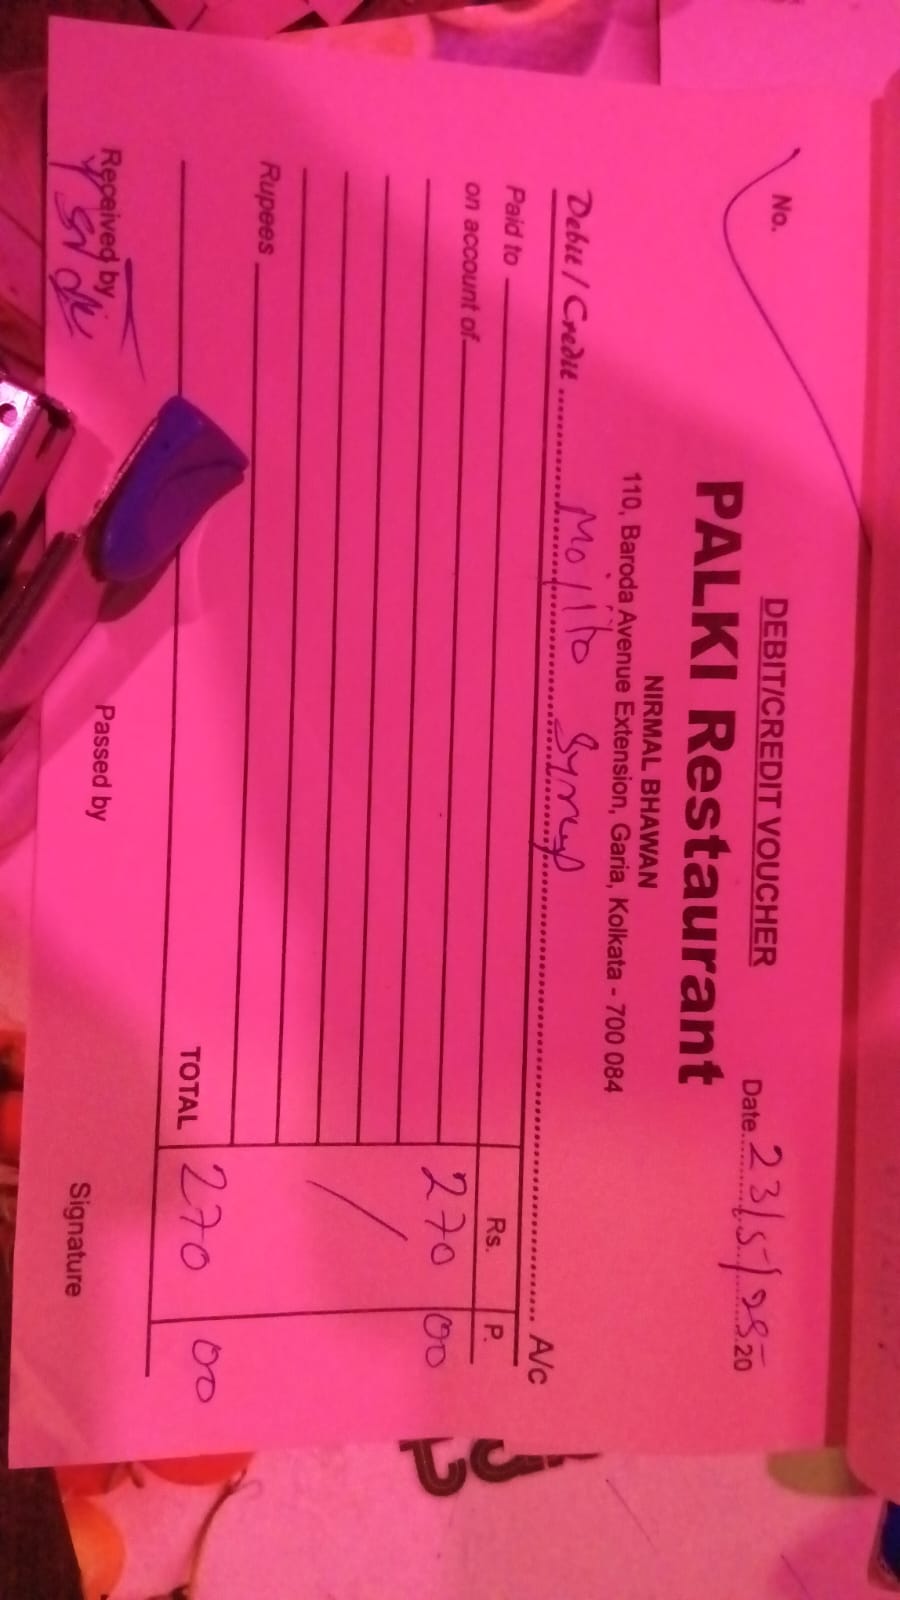 DEBIT/CREDIT VOUCHER
No.
Date 23/5/25 20
PALKI Restaurant
NIRMAL BHAWAN
110, Baroda Avenue Extension, Garia, Kolkata - 700 084
Debit / Credit Mojito Syrup A/c
Paid to Rs. P.
on account of 270 00
Rupees
TOTAL 270 00
Received by
Passed by
Signature